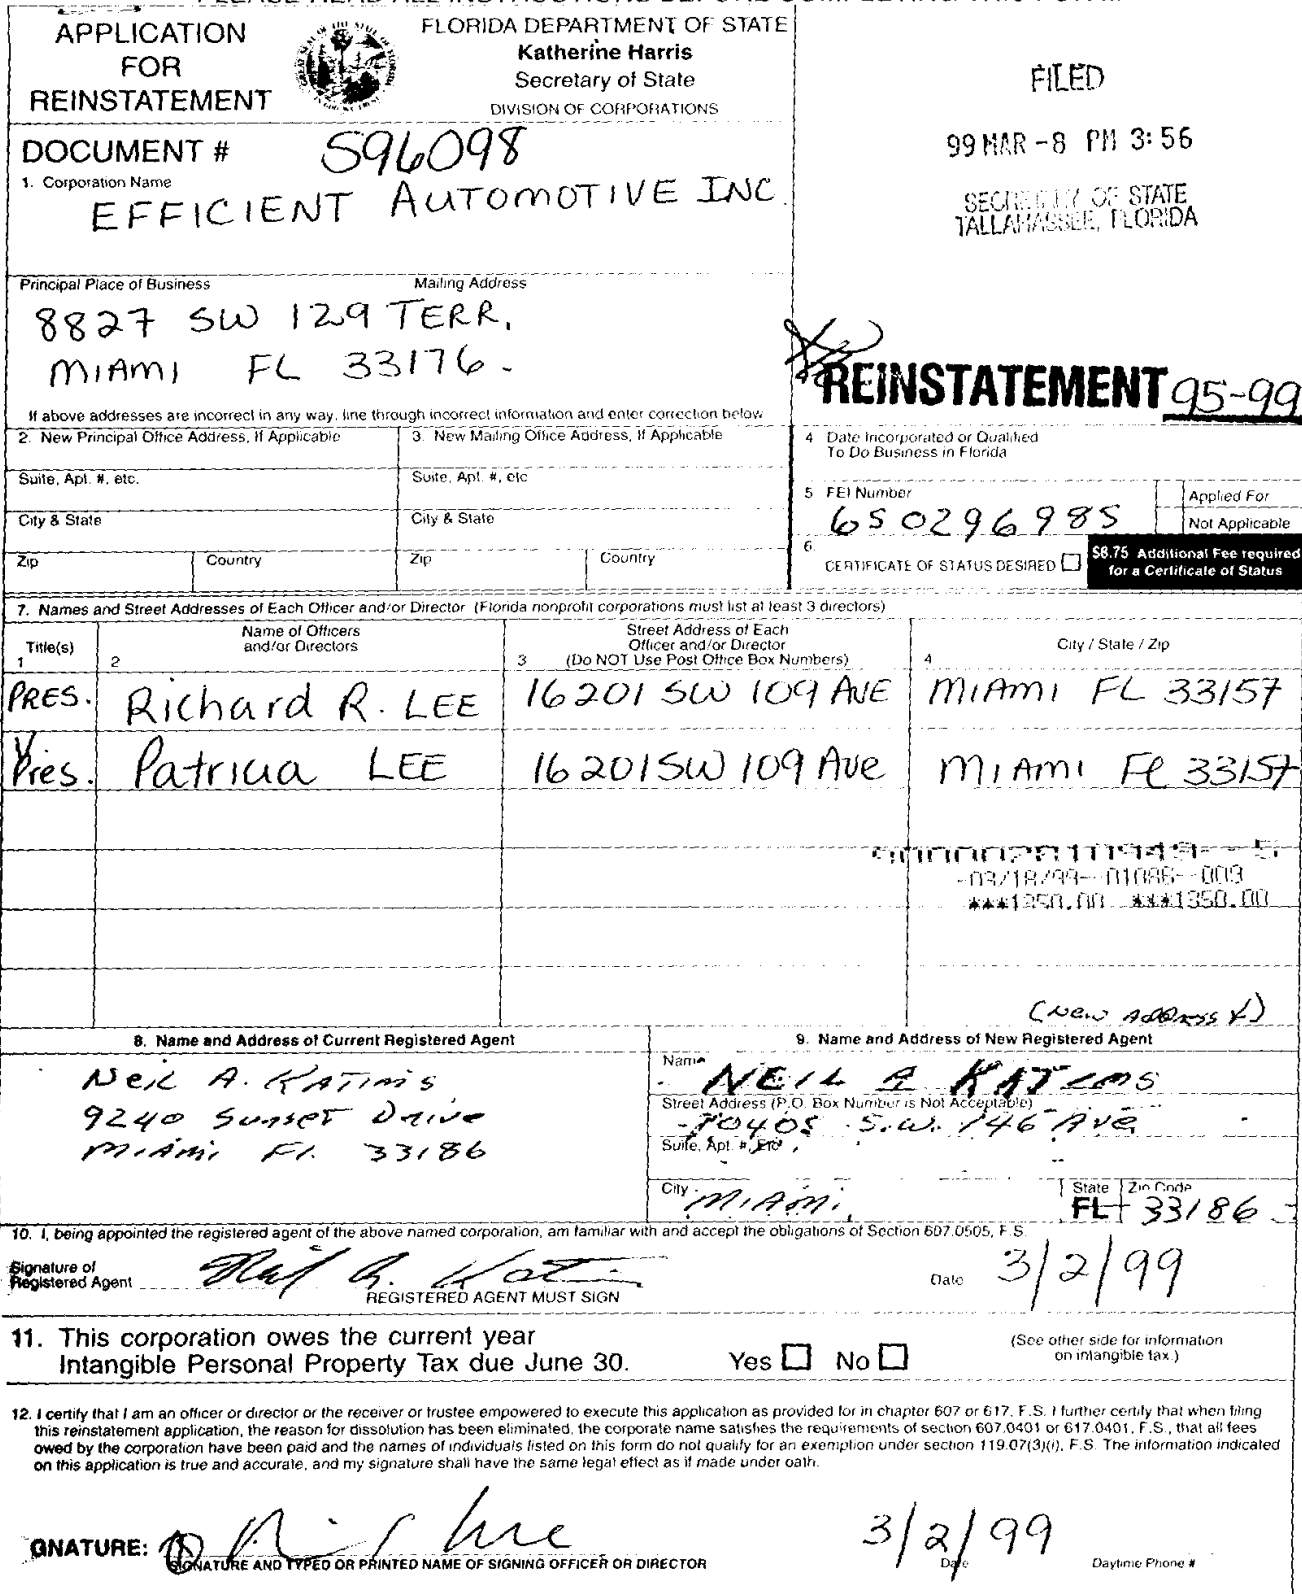 APPLICATION
FOR
REINSTATEMENT
FLORIDA DEPARTMENT OF STATE
Katherine Harris
Secretary of State
DIVISION OF CORPORATIONS
FILED
99 MAR -8 PM 3:56
SECRETARY OF STATE
TALLAHASSEE, FLORIDA
DOCUMENT # S96098
1. Corporation Name
EFFICIENT AUTOMOTIVE INC.
Principal Place of Business Mailing Address
8827 SW 129 TERR.
MIAMI FL 33176.
REINSTATEMENT 95-99
If above addresses are incorrect in any way, line through incorrect information and enter correction below
2. New Principal Office Address, If Applicable
3. New Mailing Office Address, If Applicable
4 Date Incorporated or Qualified
To Do Business in Florida
Suite, Apt. #, etc.
Suite, Apt. #, etc
5 FEI Number
650296985
Applied For
Not Applicable
City & State
City & State
6.
CERTIFICATE OF STATUS DESIRED
$8.75 Additional Fee required
for a Certificate of Status
Zip Country
Zip Country
7. Names and Street Addresses of Each Officer and/or Director (Florida nonprofit corporations must list at least 3 directors)
Title(s)
1
Name of Officers
and/or Directors
2
Street Address of Each
Officer and/or Director
3 (Do NOT Use Post Office Box Numbers)
City / State / Zip
4
PRES. Richard R. LEE 16201 SW 109 AVE MIAMI FL 33157
V
Pres. Patricia LEE 16201 SW 109 Ave MIAMI FL 33157
-03/18/99--01086--003
***1350.00 ***1350.00
(New Address)
8. Name and Address of Current Registered Agent
9. Name and Address of New Registered Agent
Neil A. Katims
9240 Sunset Drive
Miami Fl. 33186
Name
NEIL A KATIMS
Street Address (P.O. Box Number is Not Acceptable)
10405 S.W. 146 Ave
Suite, Apt. #, Etc
City
MIAMI
State
FL
Zip Code
33186
10. I, being appointed the registered agent of the above named corporation, am familiar with and accept the obligations of Section 607.0505, F.S.
Signature of
Registered Agent
REGISTERED AGENT MUST SIGN
Date 3/2/99
11. This corporation owes the current year
Intangible Personal Property Tax due June 30. Yes No
(See other side for information
on intangible tax.)
12. I certify that I am an officer or director or the receiver or trustee empowered to execute this application as provided for in chapter 607 or 617, F.S. I further certify that when filing
this reinstatement application, the reason for dissolution has been eliminated, the corporate name satisfies the requirements of section 607.0401 or 617.0401, F.S., that all fees
owed by the corporation have been paid and the names of individuals listed on this form do not qualify for an exemption under section 119.07(3)(i), F.S. The information indicated
on this application is true and accurate, and my signature shall have the same legal effect as if made under oath.
GNATURE:
3/2/99
SIGNATURE AND TYPED OR PRINTED NAME OF SIGNING OFFICER OR DIRECTOR
Date
Daytime Phone #